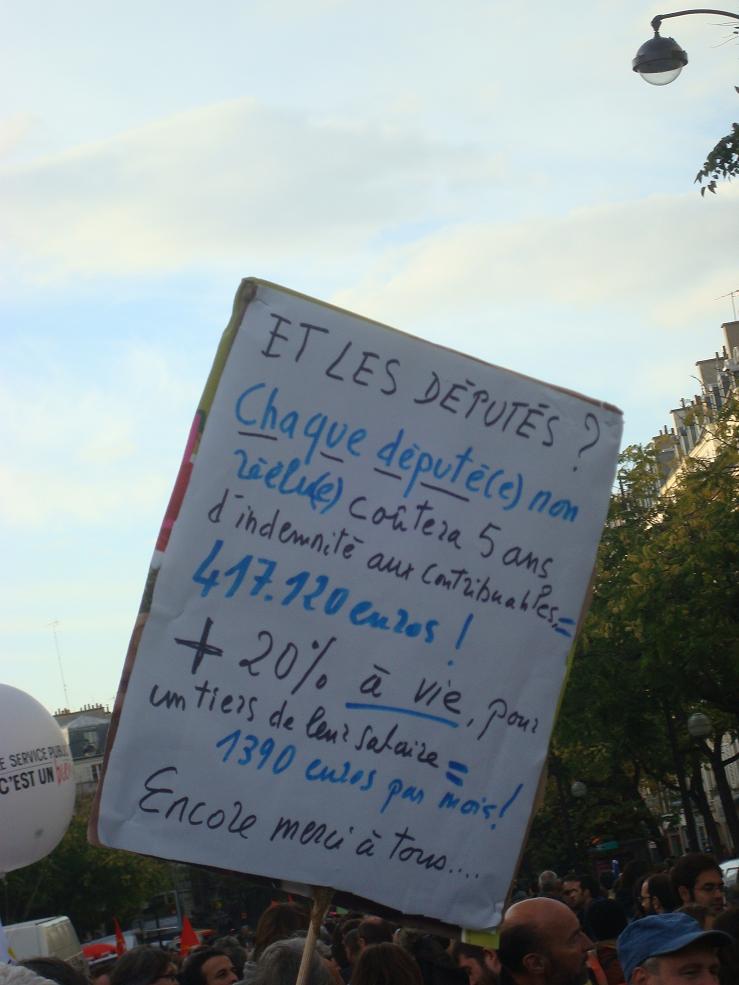 ET LES DÉPUTÉS ?
Chaque député(e) non
réélu(e) coûtera 5 ans
d'indemnité aux contribuables =
417.120 euros !
+ 20% à vie, pour
un tiers de leur salaire =
1390 euros par mois !
Encore merci à tous....
E SERVICE PUBL
C'EST UN